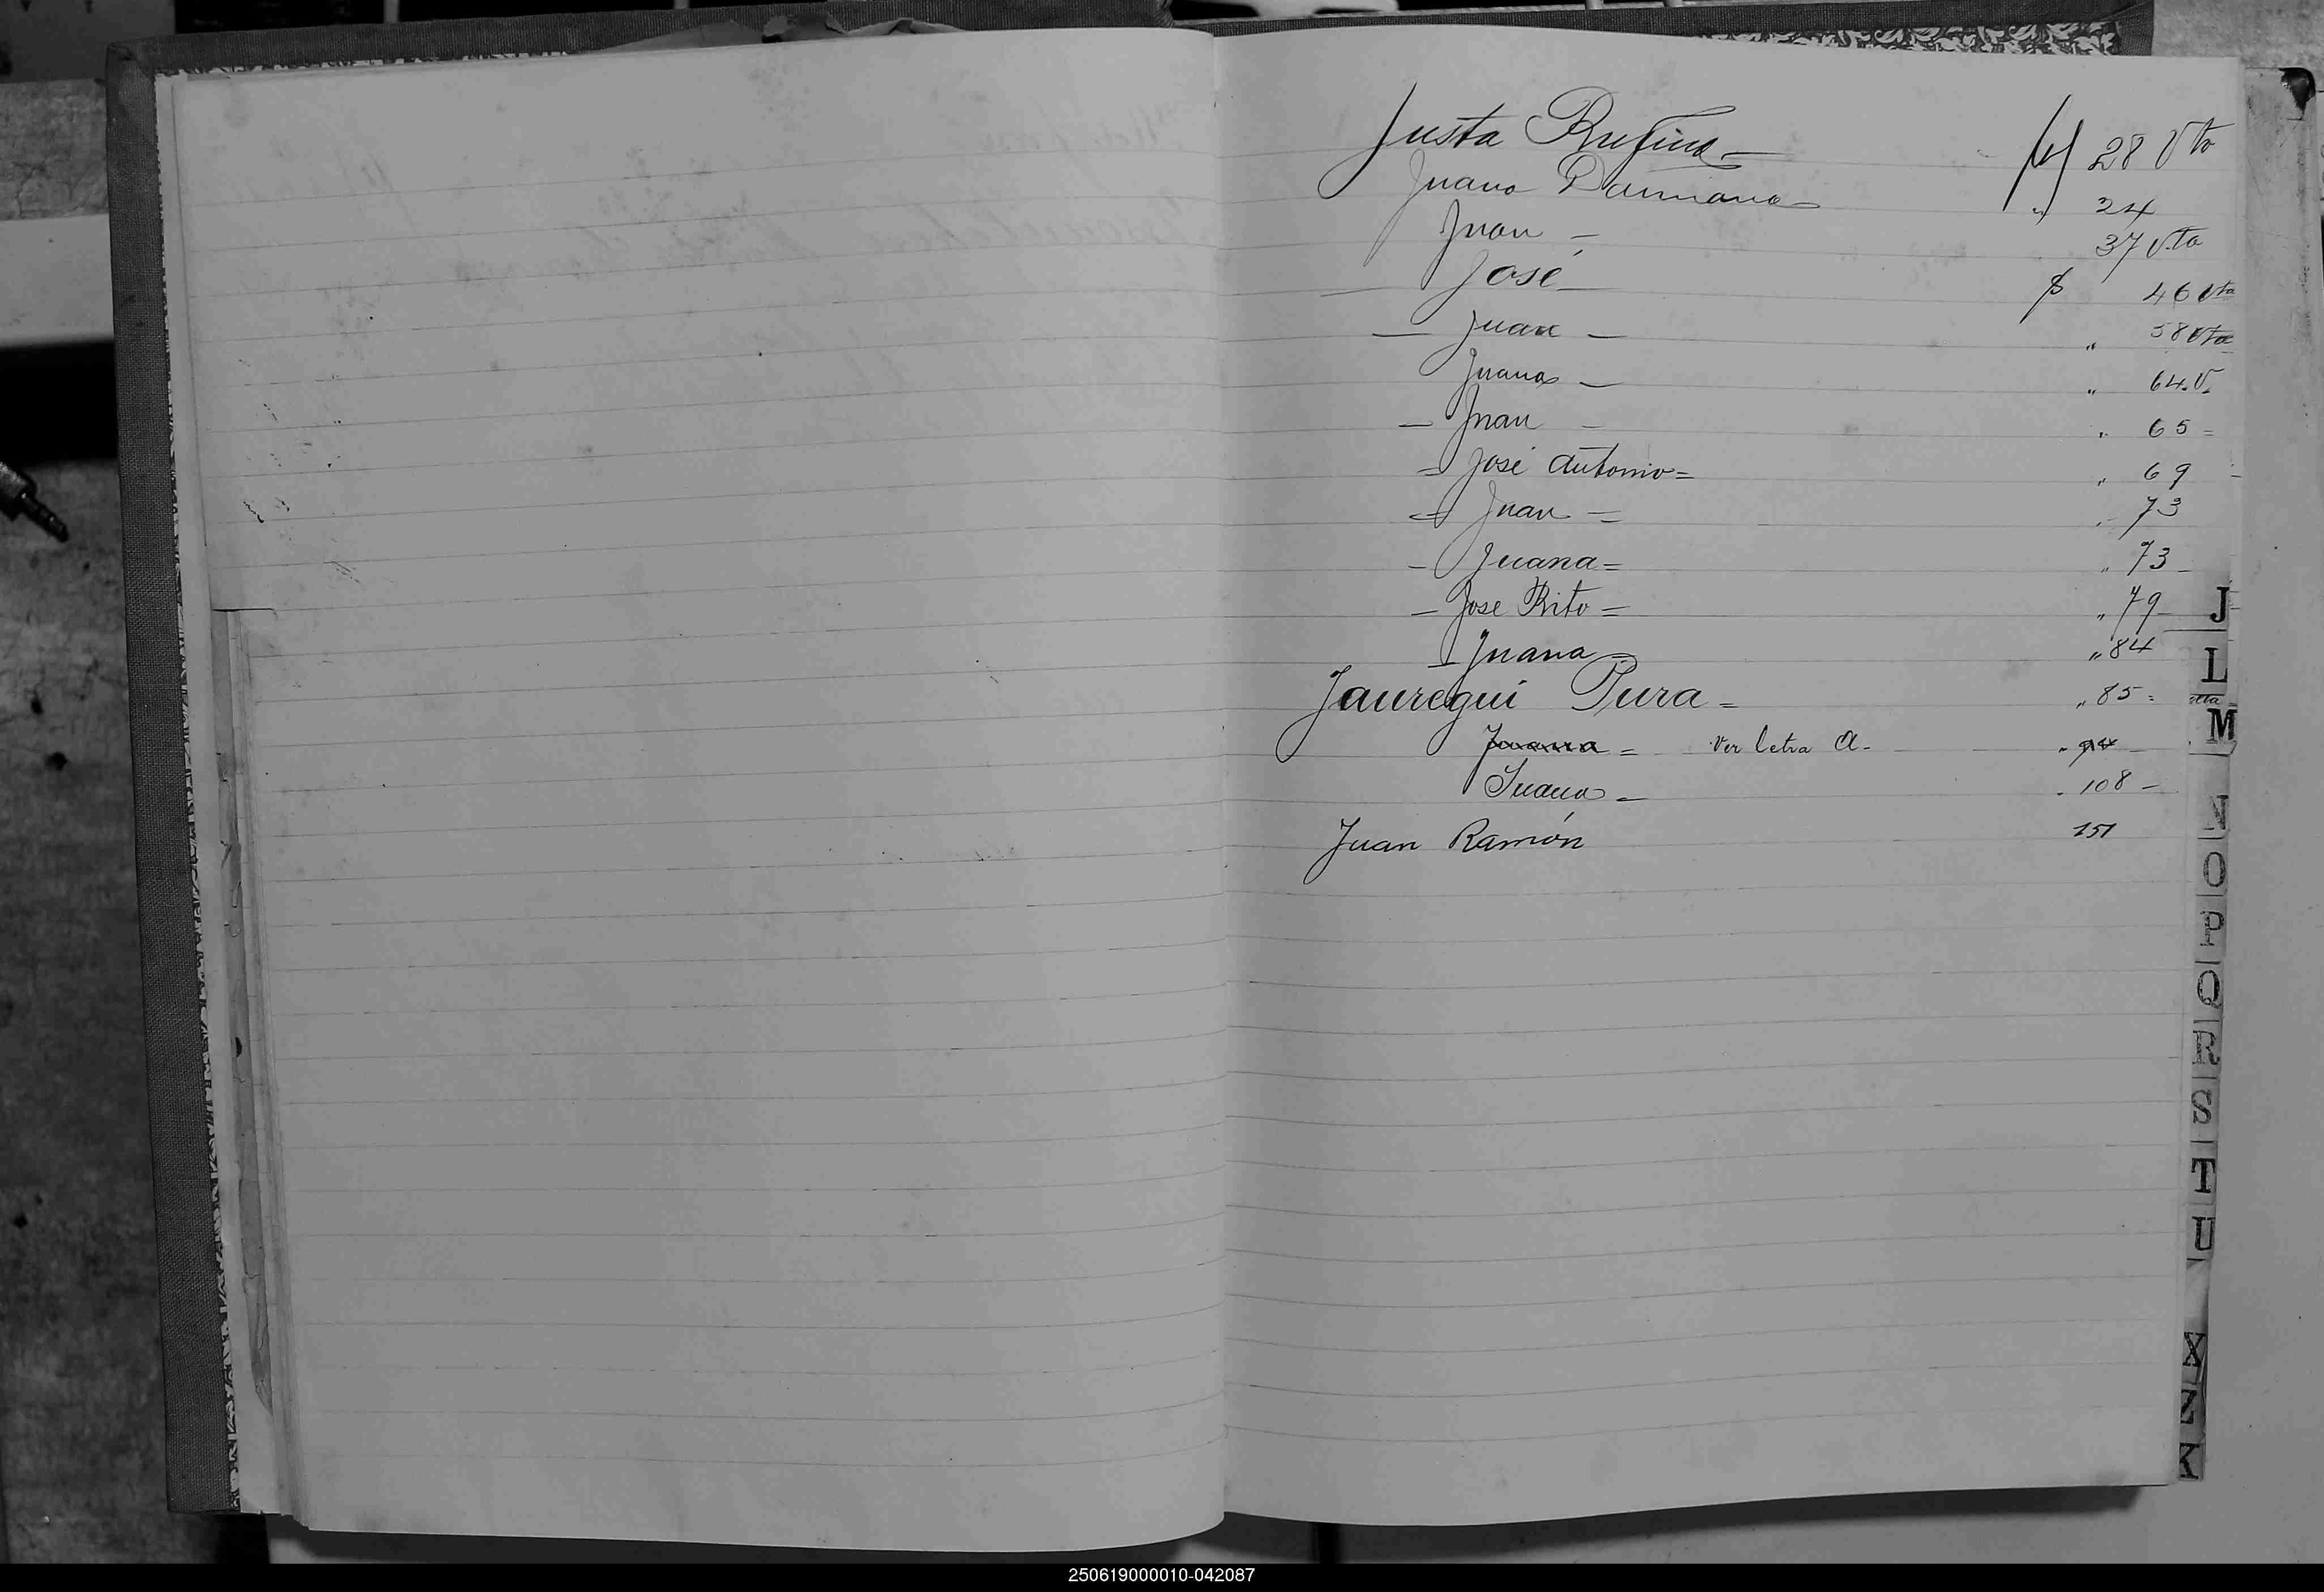 Justa Rufina - 28 Vto
Juana Damiana - " 24
Juan - 37 Vta
José - 46 Vta
- Juan - " 58 Vta
Juana - " 64. V.
- Juan - " 65 =
= José Antonio = " 69
Juan = " 73
- Juana = " 73 -
- Jose Rito = " 79
- Juana = " 84
Jauregui Pura = " 85 =
Juana = Ver letra A. -
Juana = . 108 -
Juan Ramón 151
J
L
M
N
O
P
Q
R
S
T
U
X
Z
K
250619000010-042087